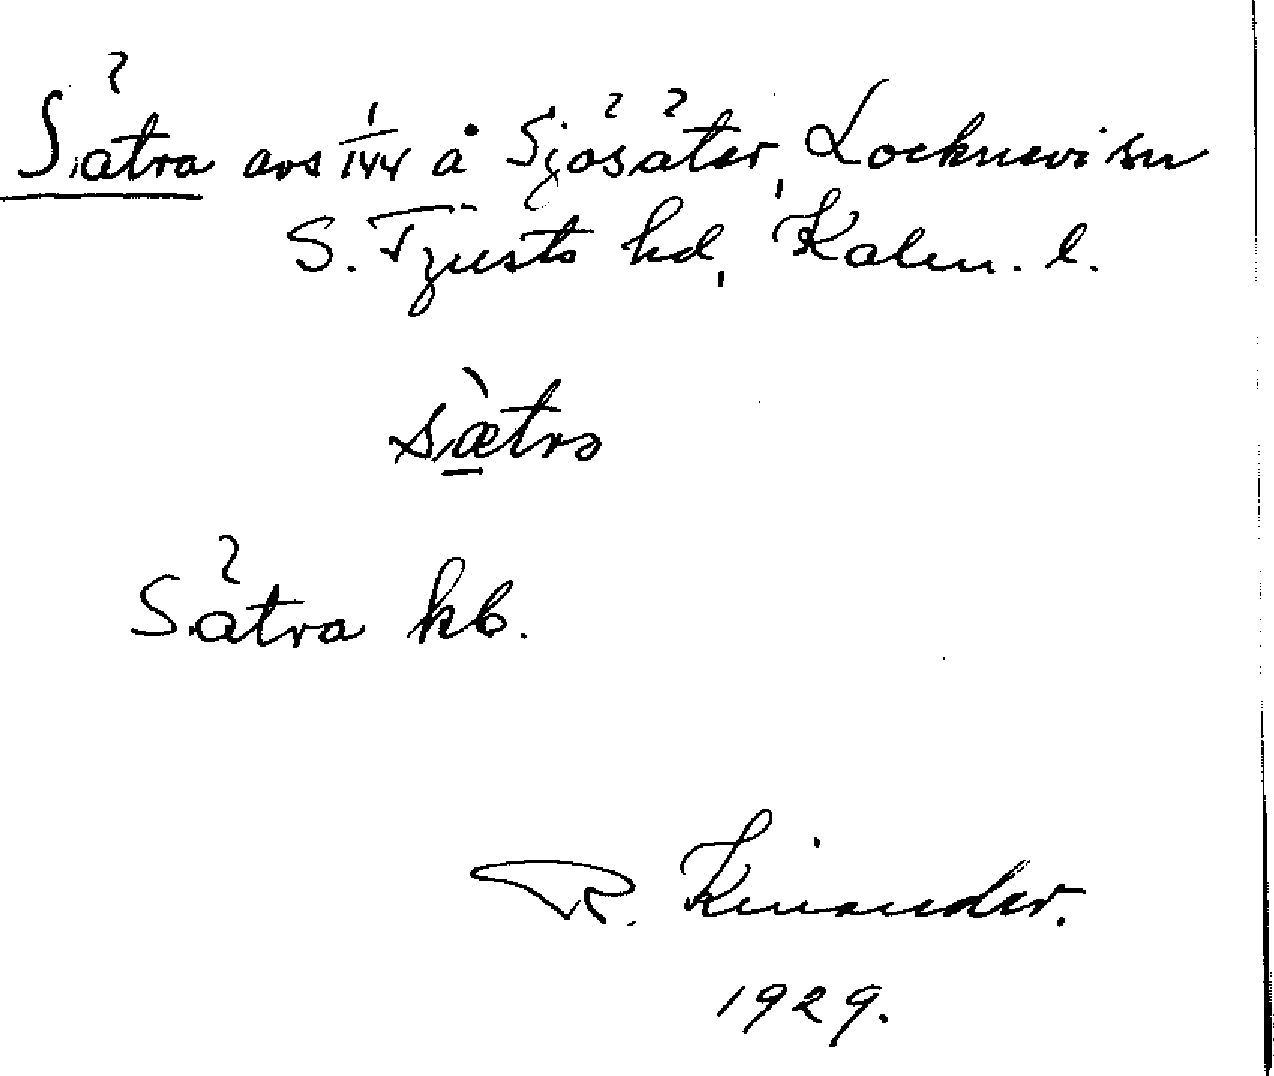 Sätra avs 1/144 å Sjösäter, Locknevi sn
S. Tjusts hd, Kalm. l.
sæ̀trə
Sätra kb.
R. Kinander.
1929.